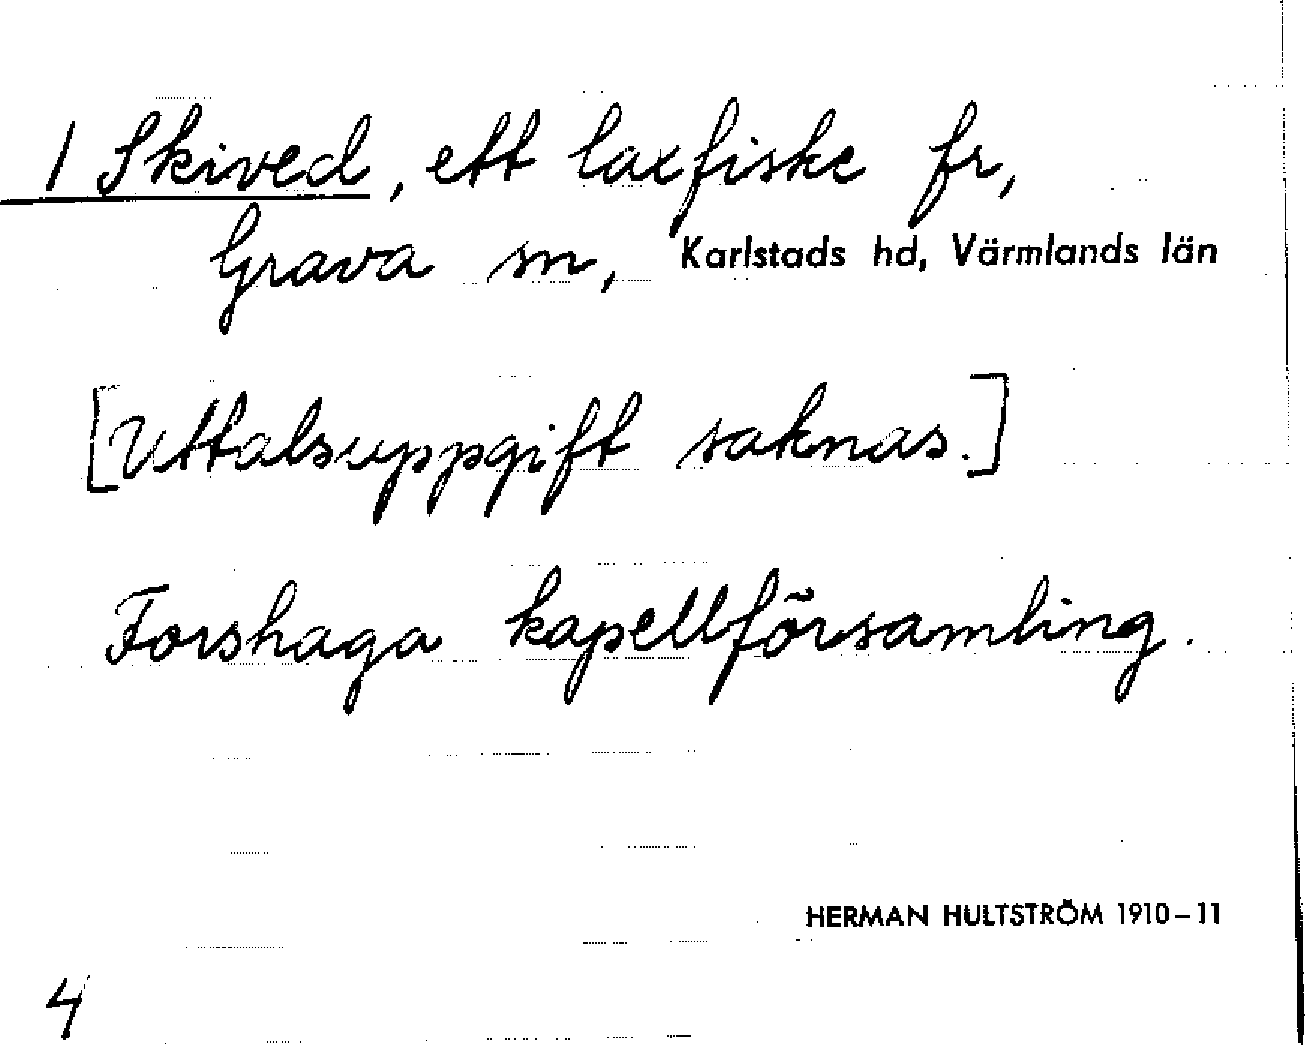 1 Skived, ett laxfiske fr,
Grava sn, Karlstads hd, Värmlands län
[Uttalsuppgift saknas.]
Forshaga kapellförsamling.
HERMAN HULTSTRÖM 1910–11
4